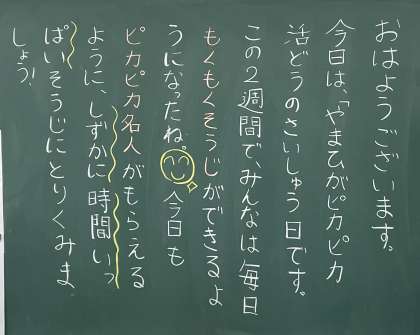 おはようございます。
今日は、「やまひがピカピカ
活どうのさいしゅう日です。
この2週間で、みんなは毎日
もくもくそうじができるよ
うになったね。今日も
ピカピカ名人がもらえる
ように、しずかに時間いっ
ぱいそうじにとりくみま
しょう!